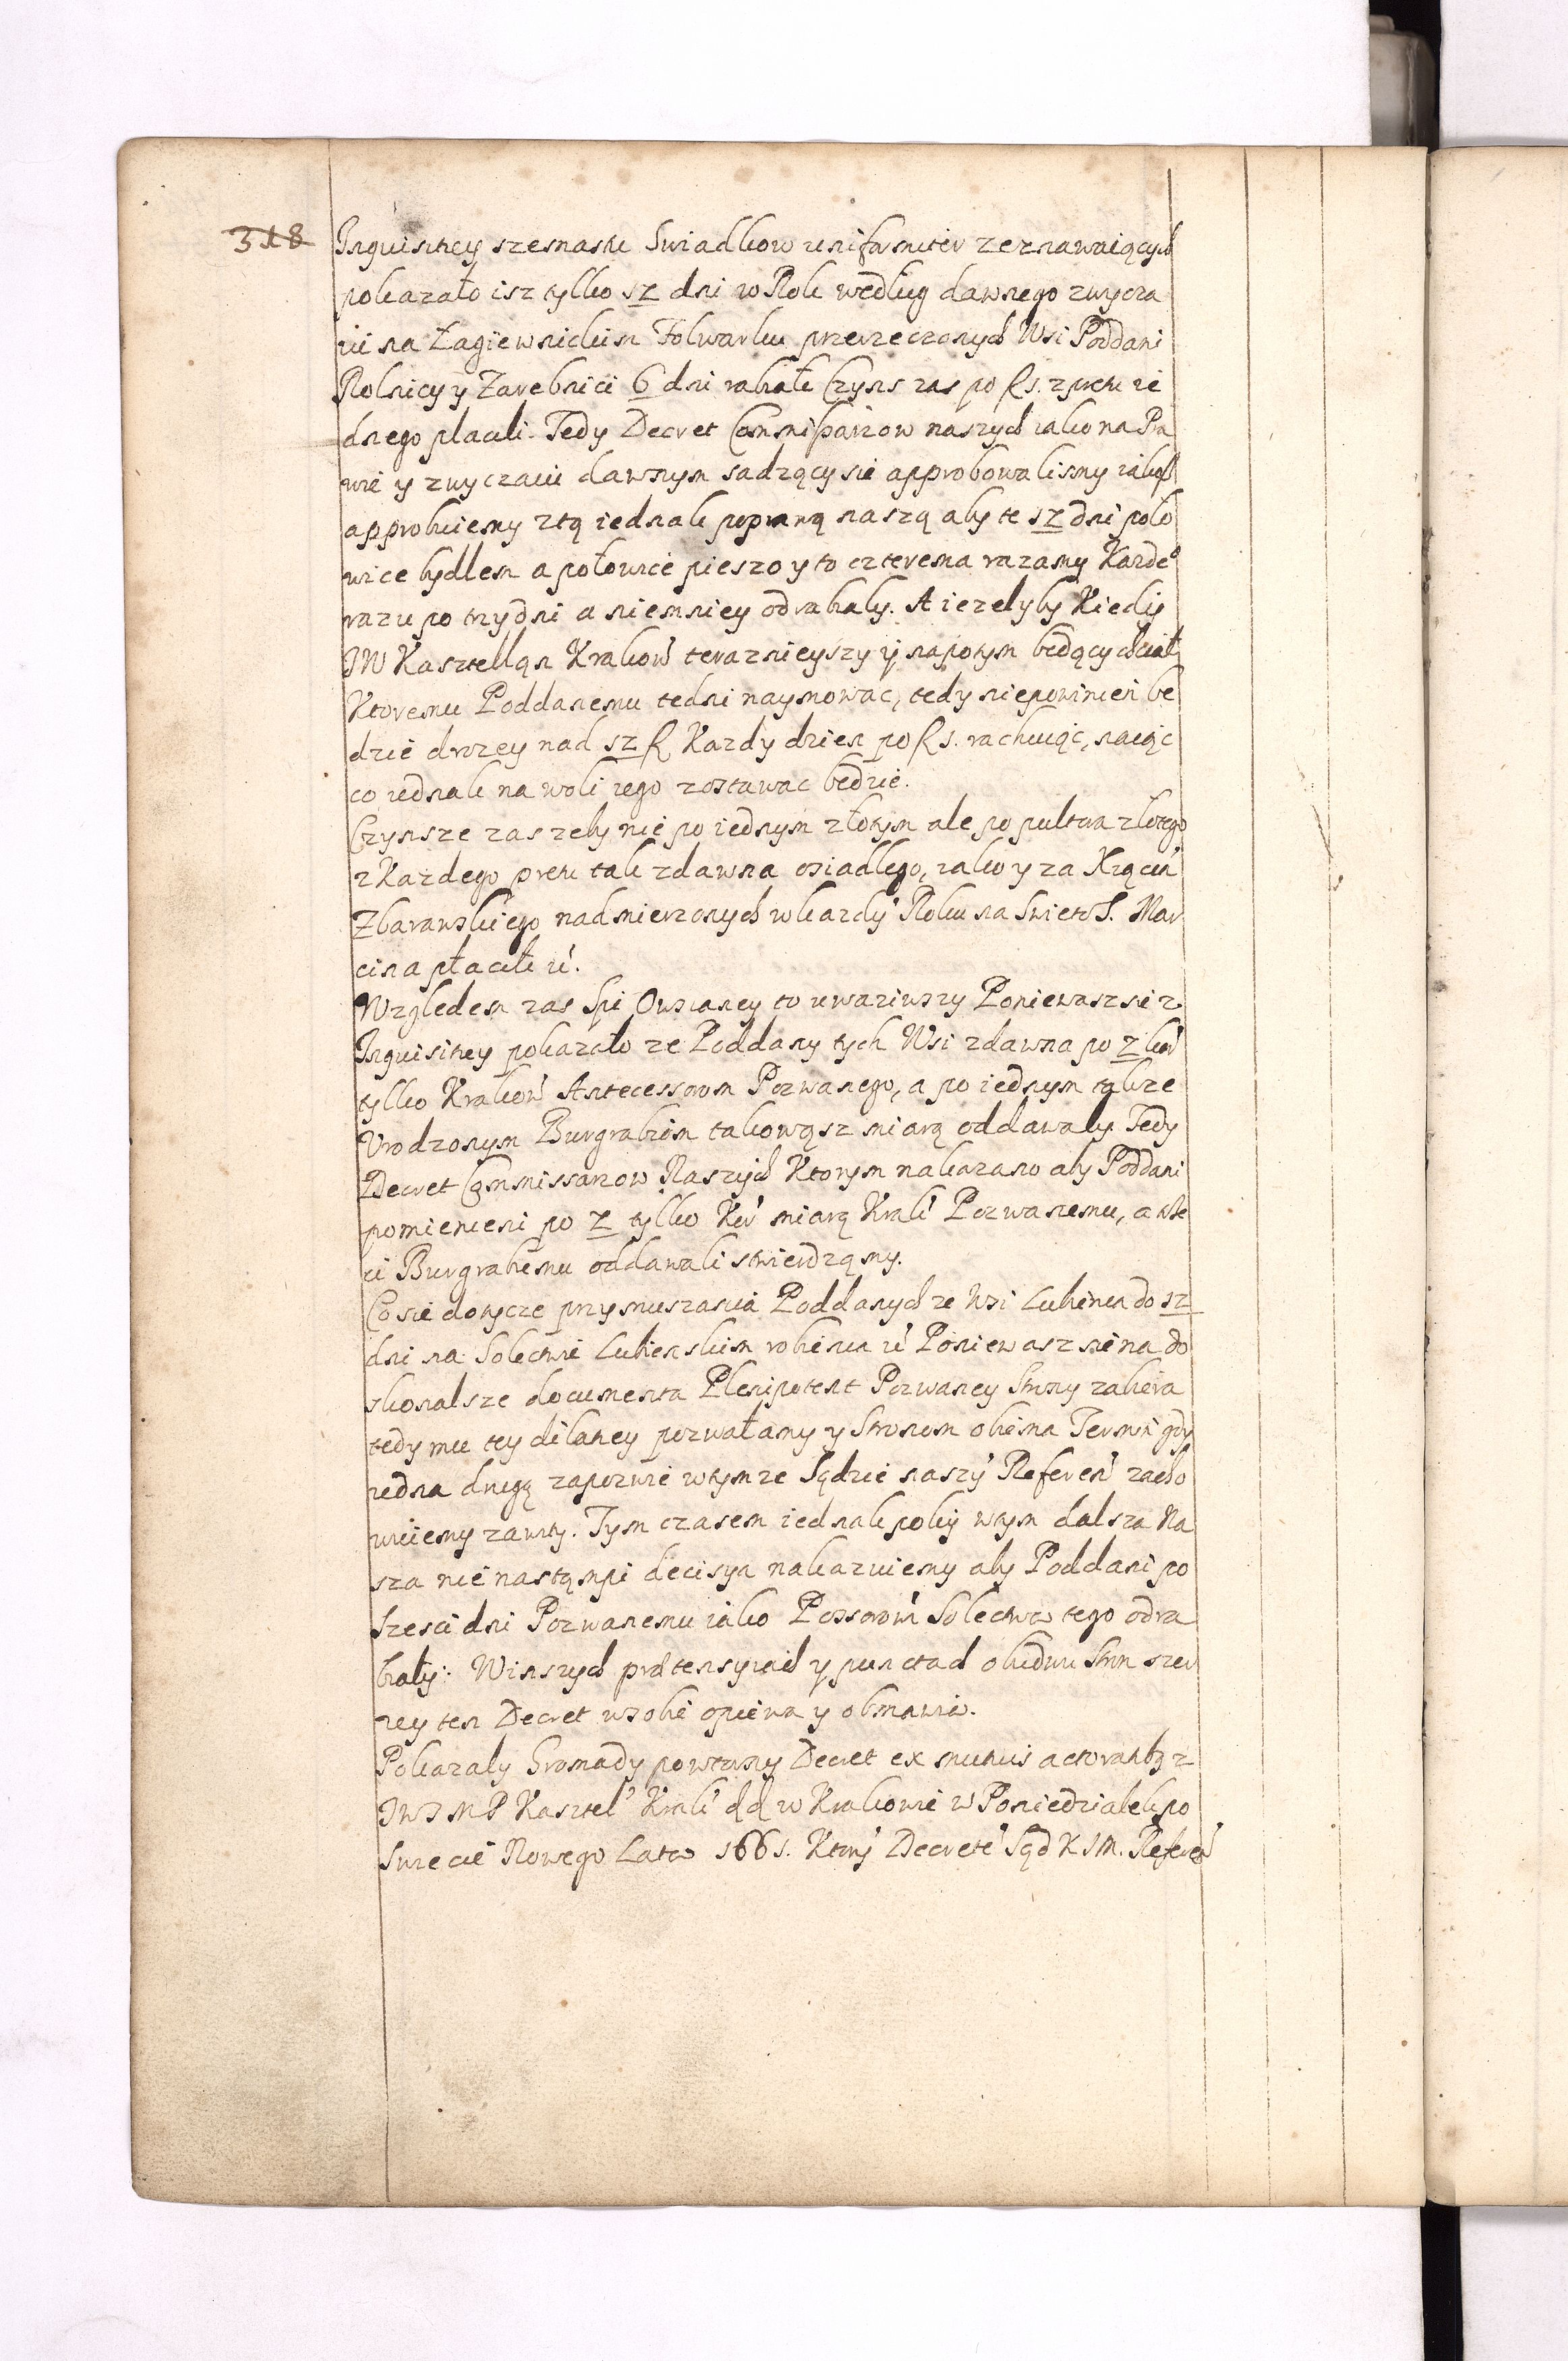 318
Inquisitiey szesnastu Swiadkow uniformiter zeznawaiących
pokazało isz tylko 12 dni w Rok według dawnego zwycza
iu na Łagiewnickim Folwarku przerzeczonych Wsi Poddani
Rolnicy y Zarebnici 6 dni rabiali Czyns zas po f 1. z pretu ie
dnego placili. Tedy Decret Commissarzow naszych iako na Pra
wie y zwyczaiu dawnym sadzący sie approbowalismy iakosz
approbuiemy z tą iednak poprawą naszą aby te 12 dni poło
wice bydlem a połowice pieszo y to czterema razamy Kazdeo
razu po trzy dni a niemniey odrabialy. A iezelyby Kiedy
JW Kasztelląn Krakow terazniejszy y napotym będący chciał
Ktoremu Poddanemu te dni naymowac, tedy niepowinien be
dzie drozey nad 12 f Kazdy dzien po f 1. rachuiąc, naiąc
co iednak na woli iego zostawac będzie.
Czynsze zas zeby nie po iednym złotym ale po pultora złotego
z Kazdego pretu tak zdawna osiadlego, iako y za Xiącia
Zbarawskiego nadmierzonych w kazdy Roku na Swieto S. Mar
cina płacili.
Względem zas Spi Owsianey to uwaziwszy Poniewasz sie z
Inquisitiey pokazało ze Poddany tych Wsi zdawna po 2 kor
tylko Krakow Antecessorom Pozwanego, a po iednym takze
Urodzonym Burgrabiom takowąsz miarą oddawaly. Tedy
Decret Commissarzow Naszych Ktorym nakazano aby Poddani
pomienieni po 2 tylko Kor miarą Krak Pozwanemu, a trze
ci Burgrabiemu oddawali stwierdząmy.
Co sie dotycze przymuszania Poddanych ze Wsi Lubienia do 12
dni na Solectwie Lubienskim robienia Poniewasz sie na do
skonalsze documenta Plenipotent Pozwaney Strony zabiera
tedy mu tey dilatiey pozwałamy y Stronom obiema Termin gdy
iedna drugą zapozwie w tymze Sądzie naszy Referen zacho
wuiemy zawity. Tym czasem iednak poky w tym dalsza Na
sza nie nastąmpi decisya nakazuiemy aby Poddani po
szesci dni Pozwanemu iako Possessorowi Solectwa tego odra
biały. W inszych prætensyiach y punctach obudwu Stron szer
zey ten Decret w sobie opiewa y obmawia.
Pokazaly Gromady powtorny Decret ex mutuis actoratibus z
JWJMP Kasztel Krak dd w Krakowie w Poniedzialek po
Swiecie Nowego Lata 1661. Ktory Decrete Sąd KJM. Referen